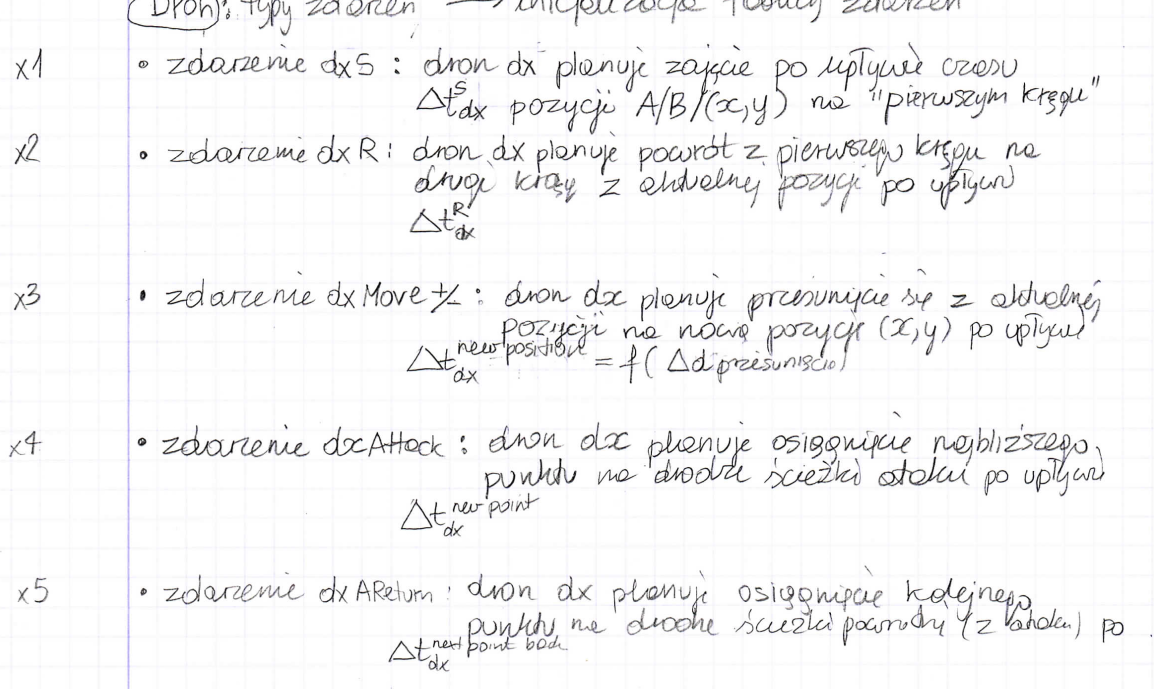 Dron: typy zdarzeń → inicjalizacja tablicy zdarzeń
x1 • zdarzenie dxS : dron dx planuje zajęcie po upływie czasu
Δt^S_dx pozycji A/B/(x,y) na "pierwszym kręgu"
x2 • zdarzenie dxR : dron dx planuje powrót z pierwszego kręgu na
drugi krąg z aktualnej pozycji po upływie
Δt^R_dx
x3 • zdarzenie dxMove +/- : dron dx planuje przesunięcie się z aktualnej
pozycji na nową pozycję (x,y) po upływie
Δt^new position_dx = f( Δd przesunięcia)
x4 • zdarzenie dxAttack : dron dx planuje osiągnięcie najbliższego
punktu na drodze ścieżki ataku po upływie
Δt^new point_dx
x5 • zdarzenie dxAReturn : dron dx planuje osiągnięcie kolejnego
punktu na drodze ścieżki powrotu (z ataku) po
Δt^next point back_dx